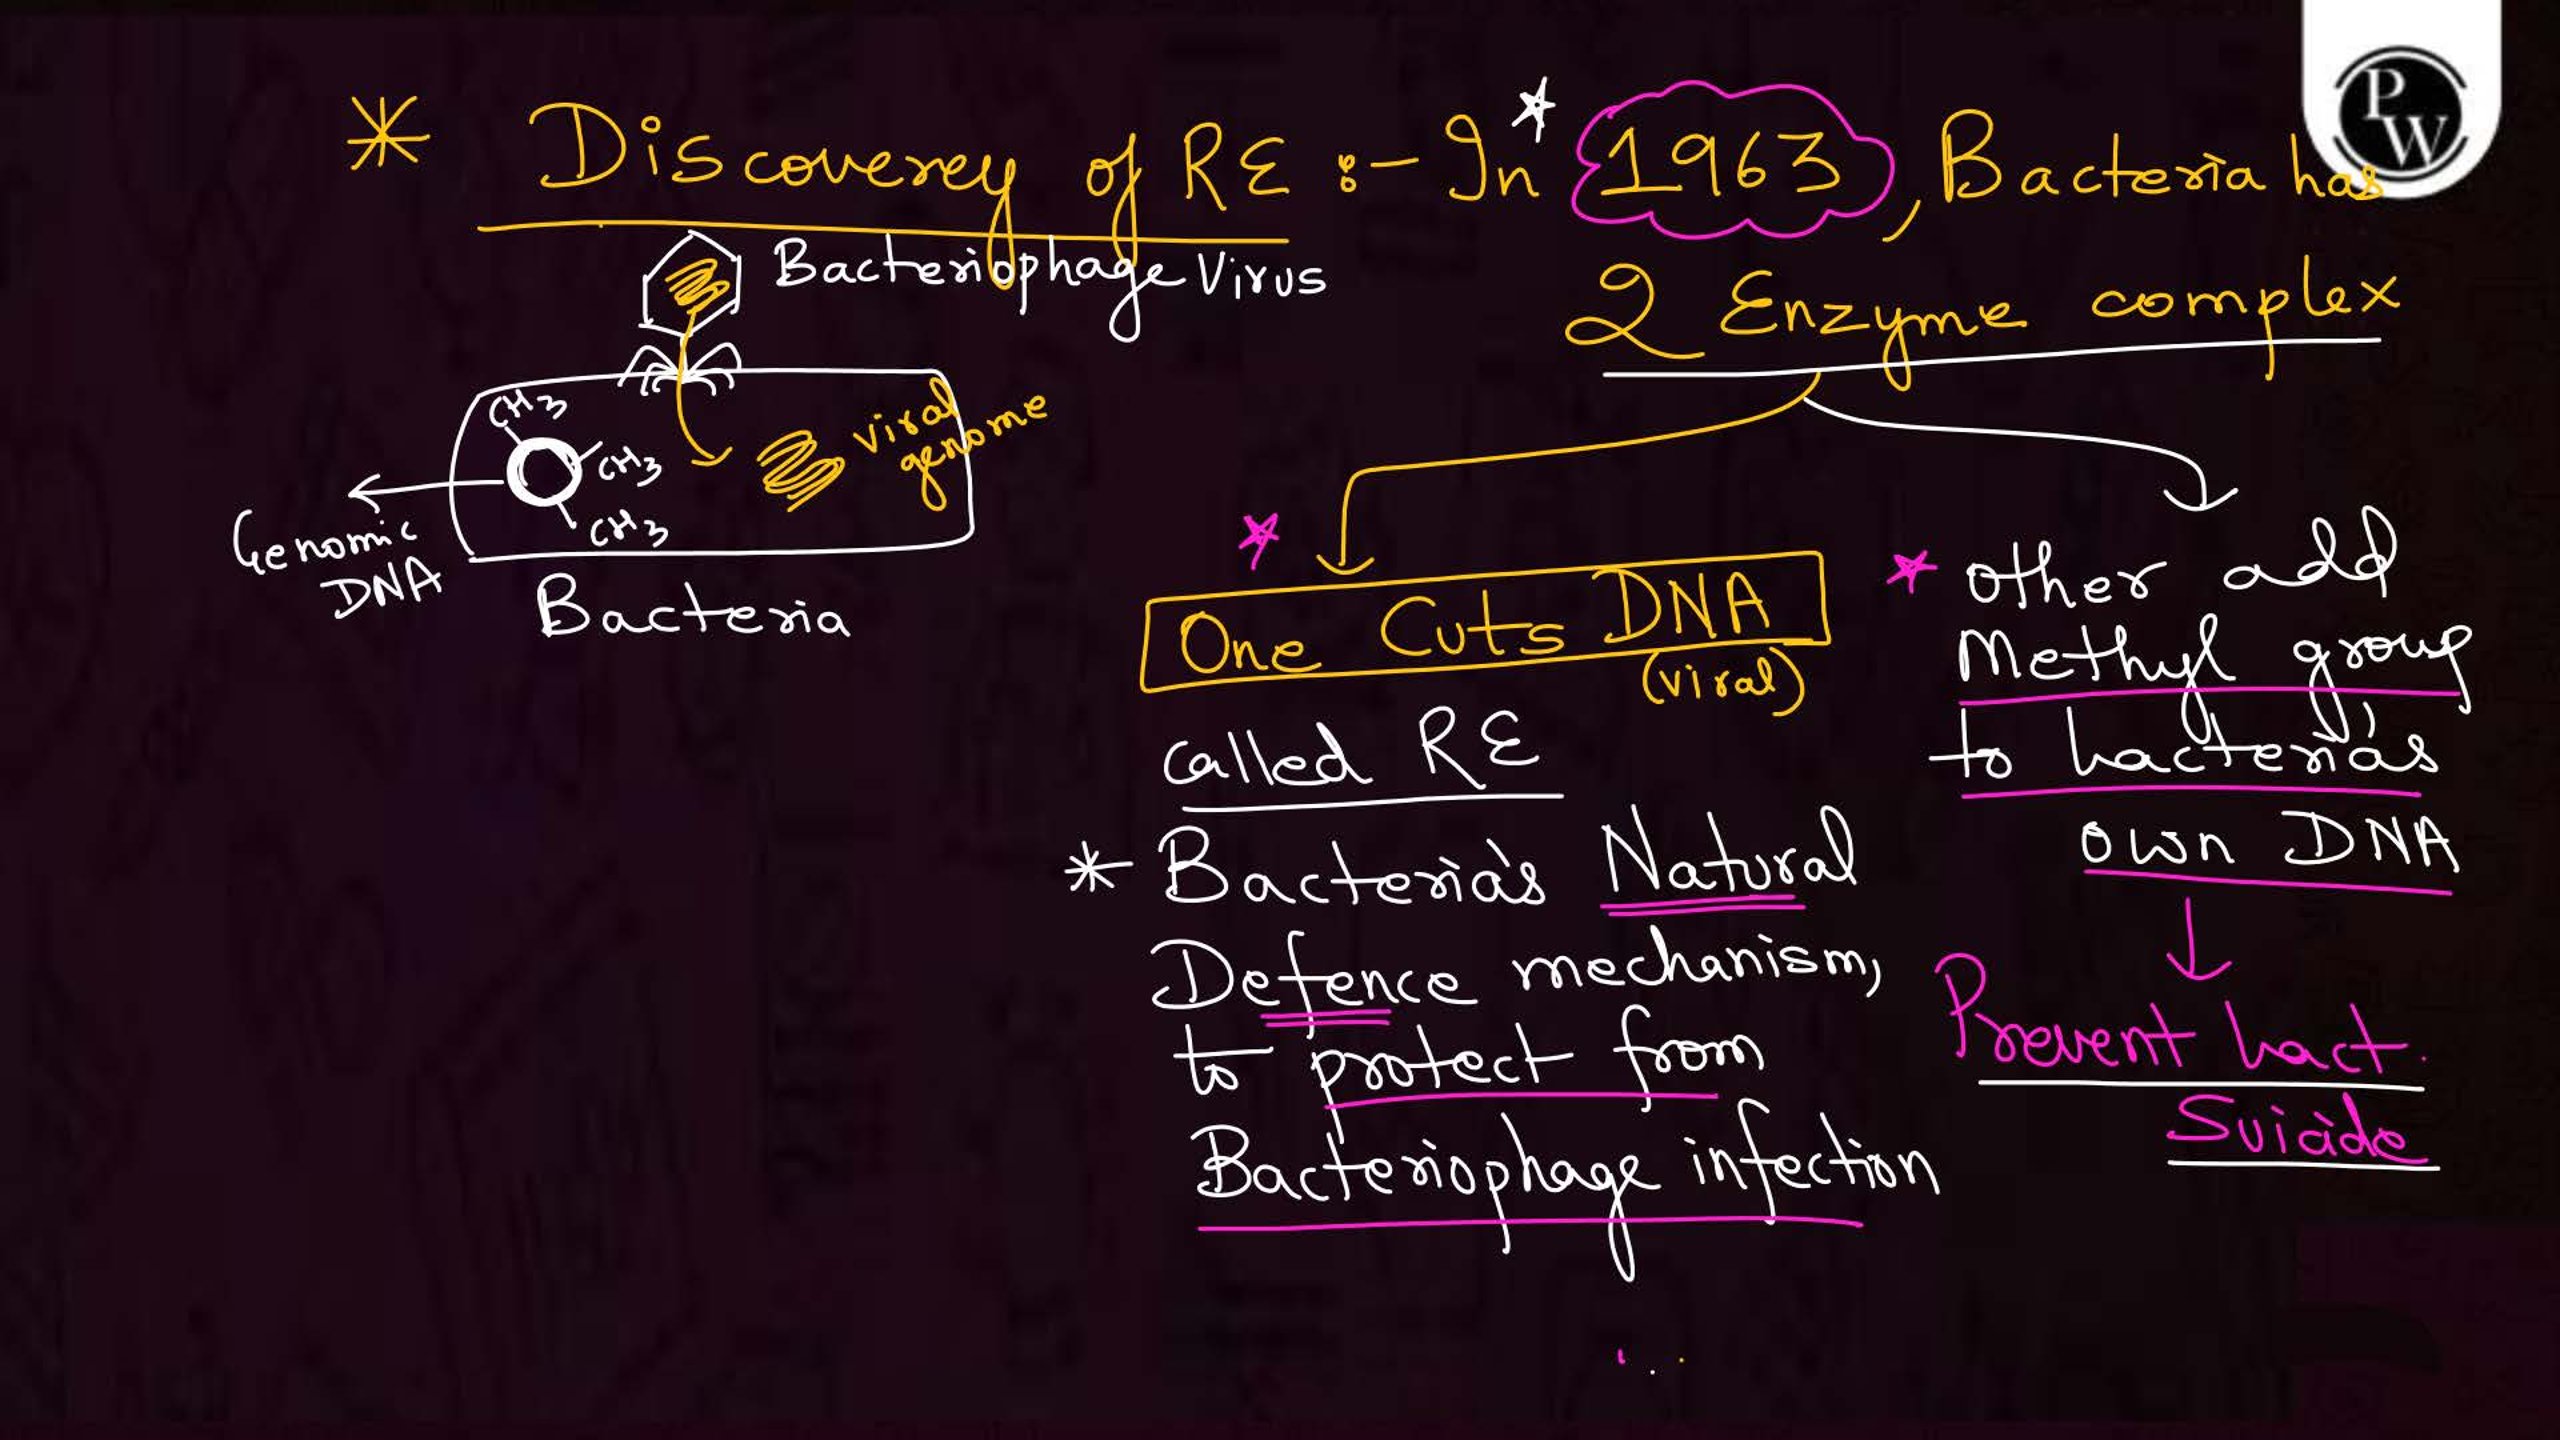 * Discoverey of RE :- In * 1963, Bacteria has
2 Enzyme complex
Bacteriophage Virus
CH3
CH3
CH3
viral
genome
Genomic
DNA
Bacteria
* One Cuts DNA
(viral)
called RE
* Bacteria's Natural
Defence mechanism,
to protect from
Bacteriophage infection
* other add
Methyl group
to bacteria's
own DNA
Prevent bact.
Suicide
PW